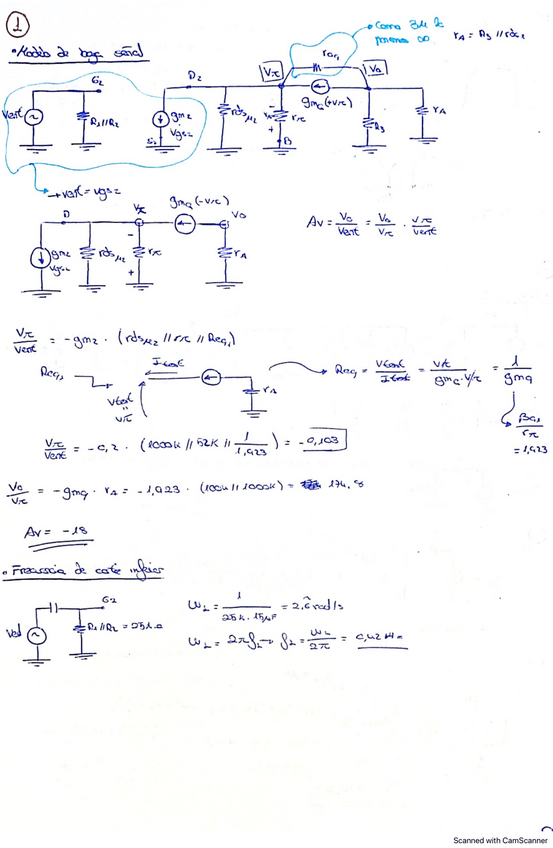 1
• Modelo de baja señal
• Como 3M lo
ponemos ∞
rA = R3 // rds1
G2
Vent
R1//R2
D2
gm2
Vgs2
S2
rdsM2
Vπ
rπ
B
gmQ(+Vπ)
Vo
R3
rA
→ Vent = Vgs2
D
gm2
Vgs2
rdsM2
Vπ
rπ
gmQ(-Vπ)
Vo
rA
Av = Vo/Vent = Vo/Vπ · Vπ/Vent
Vπ/Vent = -gm2 · (rdsM2 // rπ // Req1)
Req1
Itest
Vtest
Vπ
rA
Req1 = Vtest/Itest = Vπ/gmQ·Vπ = 1/gmQ
βQ1/rπ
= 1,923
Vπ/Vent = -0,2 · (1000k // 52k // 1/1,923) = -0,103
Vo/Vπ = -gmQ · rA = -1,923 · (100k // 1000k) = 174,8
Av = -18
• Frecuencia de corte inferior
G2
Ved
R1//R2 = 25kΩ
ωL = 1/25k·15μF = 2,6 rad/s
ωL = 2πfL → fL = ωL/2π = 0,42 Hz
Scanned with CamScanner